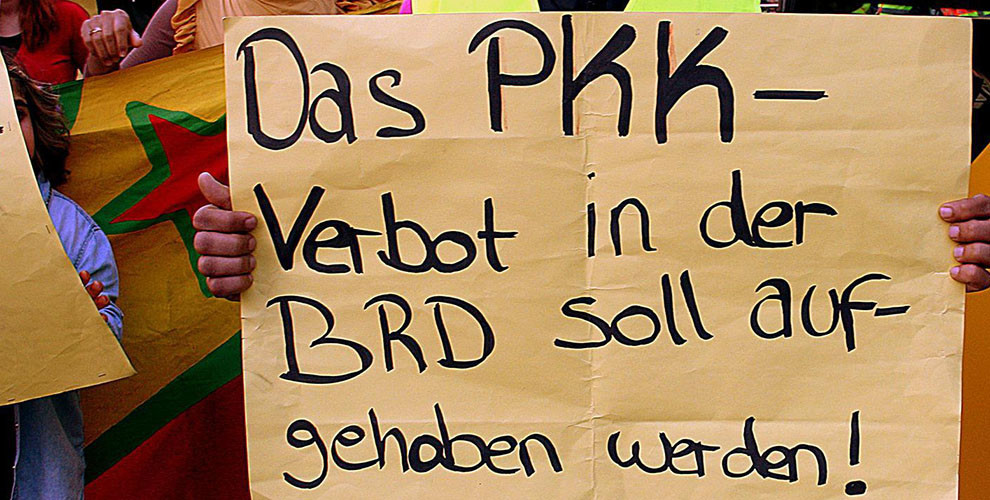 Das PKK-
Verbot in der
BRD soll auf-
gehoben werden!